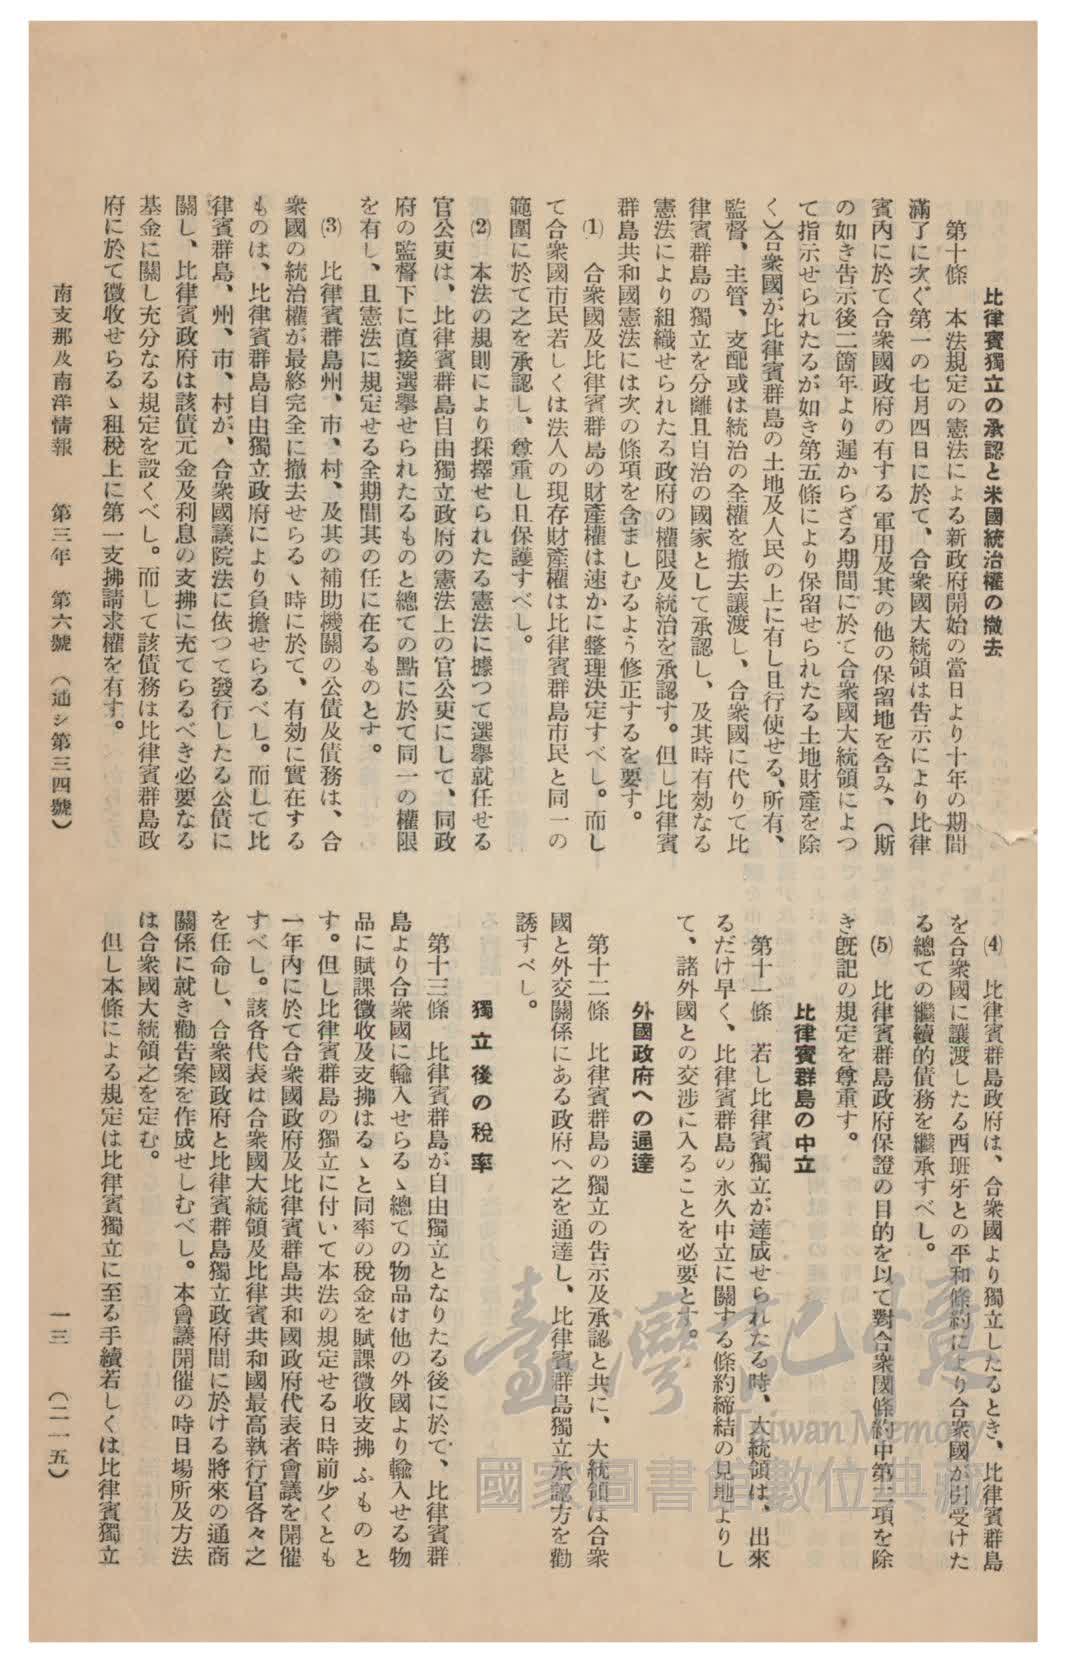 比律賓獨立の承認と米國統治權の撤去
第十條　本法規定の憲法による新政府開始の當日より十年の期間
滿了に次ぐ第一の七月四日に於て、合衆國大統領は告示により比律
賓內に於て合衆國政府の有する軍用及其の他の保留地を含み、（斯
の如き告示後二箇年より遲からざる期間に於て合衆國大統領によつ
て指示せられたるが如き第五條により保留せられたる土地財產を除
く）合衆國が比律賓群島の土地及人民の上に有し且行使せる、所有、
監督、主管、支配或は統治の全權を撤去讓渡し、合衆國に代りて比
律賓群島の獨立を分離且自治の國家として承認し、及其時有効なる
憲法により組織せられたる政府の權限及統治を承認す。但し比律賓
群島共和國憲法には次の條項を含ましむるよう修正するを要す。
⑴　合衆國及比律賓群島の財產權は速かに整理決定すべし。而し
て合衆國市民若しくは法人の現存財產權は比律賓群島市民と同一の
範圍に於て之を承認し、尊重し且保護すべし。
⑵　本法の規則により採擇せられたる憲法に據つて選擧就任せる
官公吏は、比律賓群島自由獨立政府の憲法上の官公吏にして、同政
府の監督下に直接選擧せられたるものと總ての點に於て同一の權限
を有し、且憲法に規定せる全期間其の任に在るものとす。
⑶　比律賓群島州、市、村、及其の補助機關の公債及債務は、合
衆國の統治權が最終完全に撤去せらるゝ時に於て、有効に實在する
ものは、比律賓群島自由獨立政府により負擔せらるべし。而して比
律賓群島、州、市、村が、合衆國議院法に依つて發行したる公債に
關し、比律賓政府は該債元金及利息の支拂に充てらるべき必要なる
基金に關し充分なる規定を設くべし。而して該債務は比律賓群島政
府に於て徵收せらるゝ租稅上に第一支拂請求權を有す。
⑷　比律賓群島政府は、合衆國より獨立したるとき、比律賓群島
を合衆國に讓渡したる西班牙との平和條約により合衆國が引受けた
る總ての繼續的債務を繼承すべし。
⑸　比律賓群島政府保證の目的を以て對合衆國條約中第三項を除
き旣記の規定を尊重す。
比律賓群島の中立
第十一條　若し比律賓獨立が達成せられたる時、大統領は、出來
るだけ早く、比律賓群島の永久中立に關する條約締結の見地よりし
て、諸外國との交涉に入ることを必要とす。
外國政府への通達
第十二條　比律賓群島の獨立の告示及承認と共に、大統領は合衆
國と外交關係にある政府へ之を通達し、比律賓群島獨立承認方を勸
誘すべし。
獨立後の稅率
第十三條　比律賓群島が自由獨立となりたる後に於て、比律賓群
島より合衆國に輸入せらるゝ總ての物品は他の外國より輸入せる物
品に賦課徵收及支拂はるゝと同率の稅金を賦課徵收支拂ふものと
す。但し比律賓群島の獨立に付いて本法の規定せる日時前少くとも
一年內に於て合衆國政府及比律賓群島共和國政府代表者會議を開催
すべし。該各代表は合衆國大統領及比律賓共和國最高執行官各々之
を任命し、合衆國政府と比律賓群島獨立政府間に於ける將來の通商
關係に就き勸告案を作成せしむべし。本會議開催の時日場所及方法
は合衆國大統領之を定む。
但し本條による規定は比律賓獨立に至る手續若しくは比律賓獨立
南支那及南洋情報　第三年　第六號　（通シ第三四號）
一三　（二一一五）
臺灣記憶
Taiwan Memory
國家圖書館數位典藏